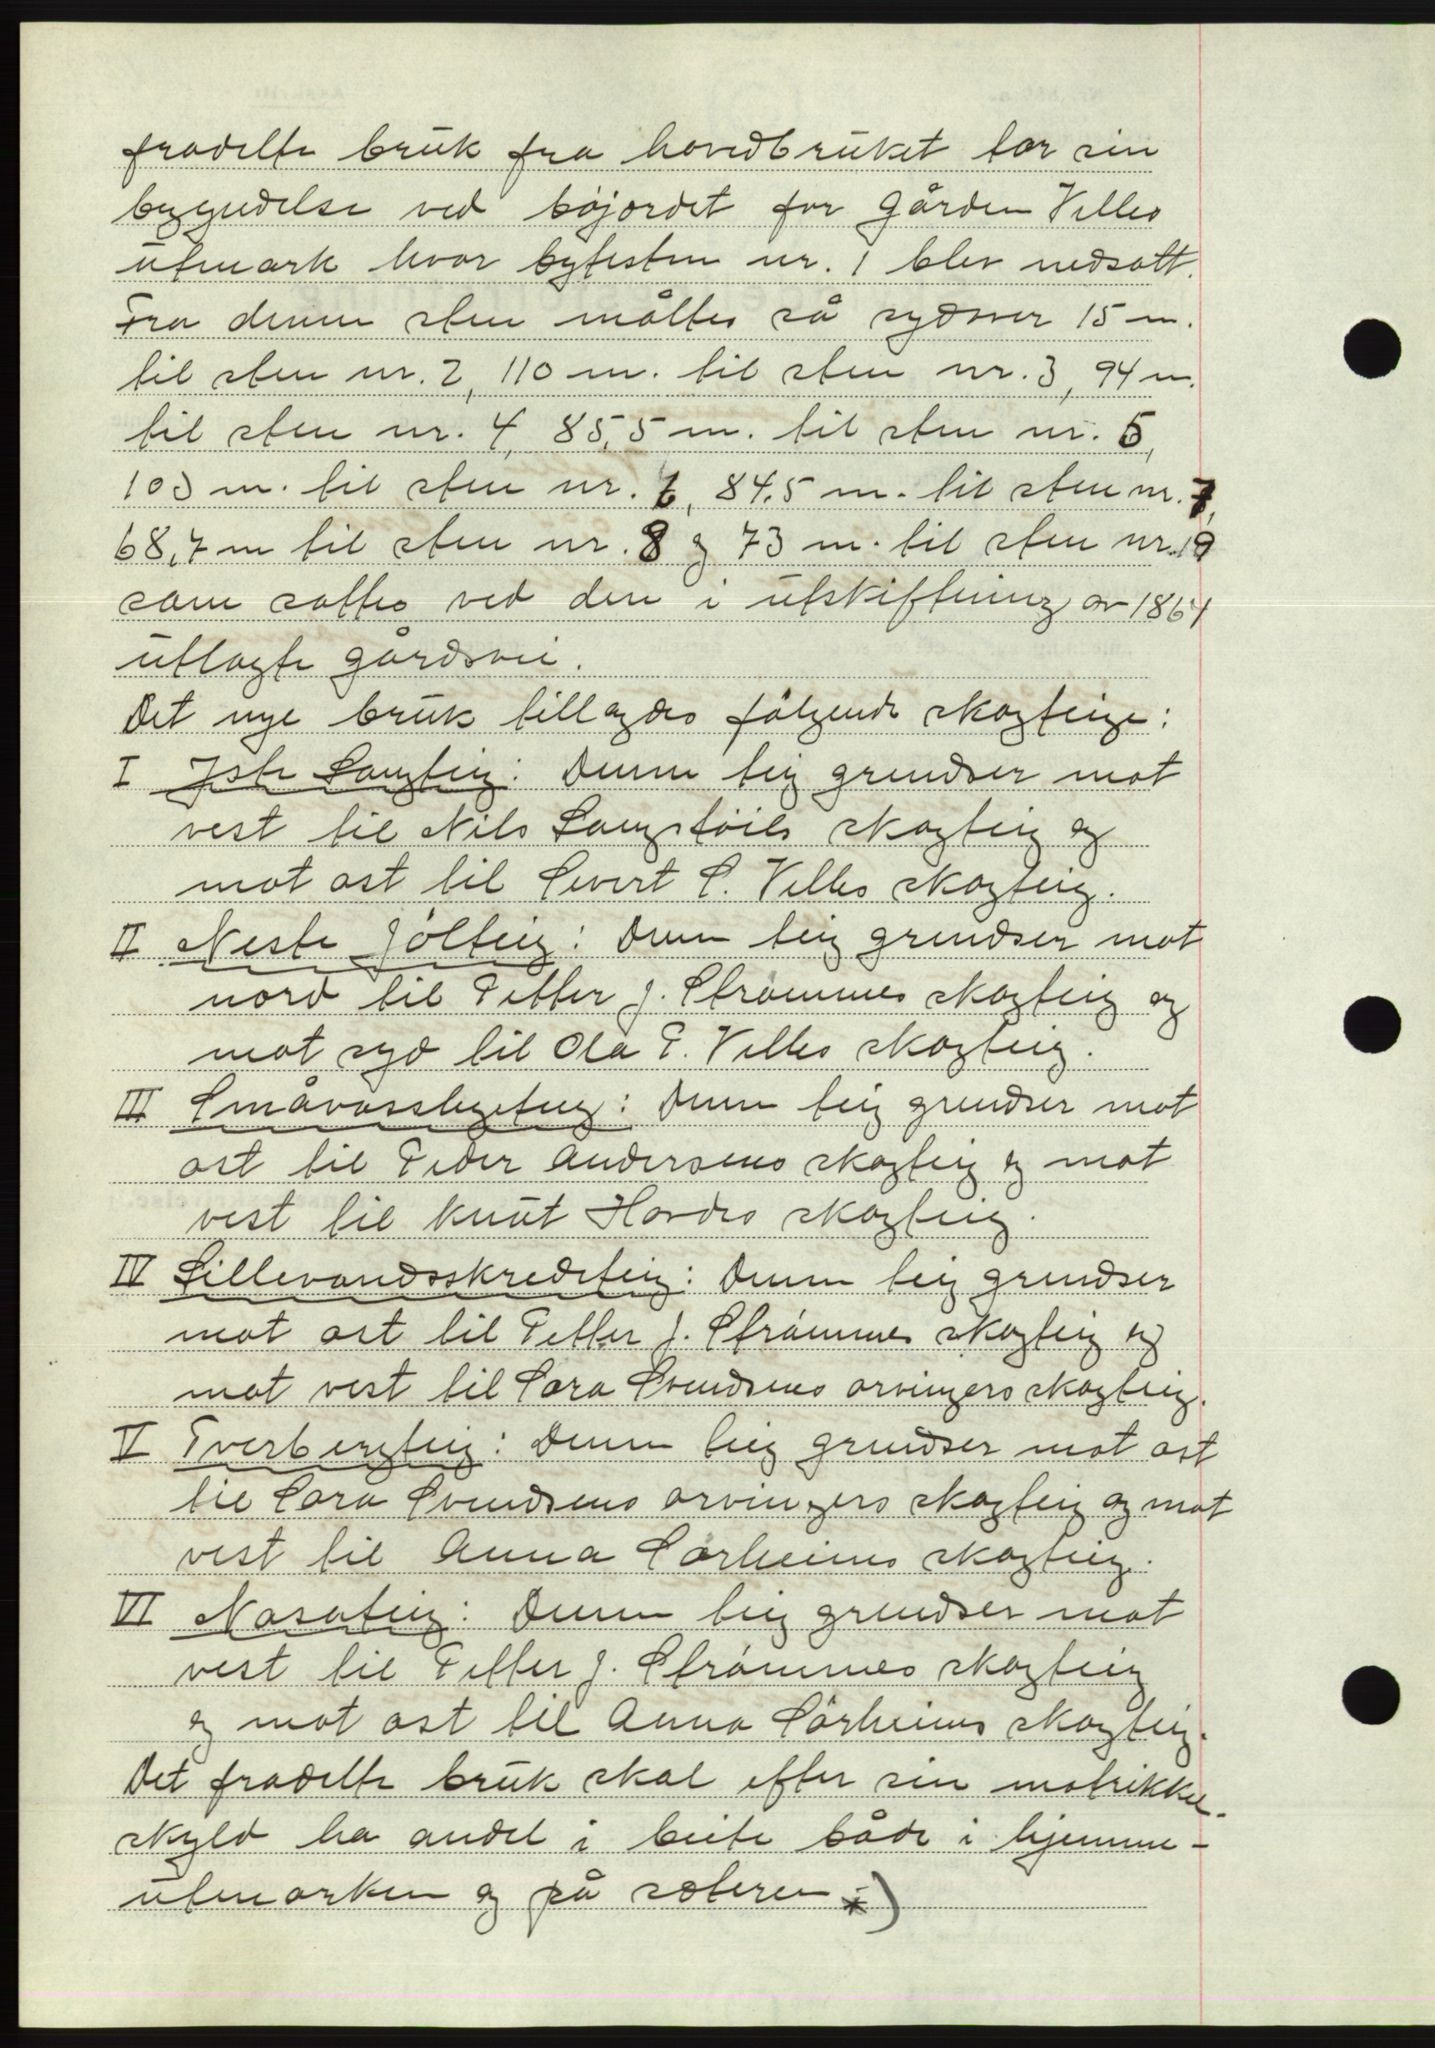 fradelte bruk fra hovedbruket tar sin
begyndelse ved böjordet for gården Velles
utmark hvor bytesten nr. 1 blev nedsatt.
Fra denne sten måltes så sydover 15 m.
til sten nr. 2, 110 m. til sten nr. 3, 94 m.
til sten nr. 4, 85,5 m. til sten nr. 5,
103 m. til sten nr. 6, 84,5 m. til sten nr. 7,
68,7 m til sten nr. 8 og 73 m. til sten nr. 9
som sattes ved den i utskiftning av 1864
utlagte gårdsvei.
Det nye bruk tillagdes følgende skogteige:
I Iste Langteig: Denne teig grendser mot
vest til Nils Langstöils skogteig og
mot ost til Sivert S. Velles skogteig.
II Neste Jölteig: Denne teig grendser mot
nord til Petter J. Strömmes skogteig og
mot syd til Ola P. Velles skogteig.
III Småvasslegeteig: Denne teig grendser mot
ost til Peder Andersens skogteig og mot
vest til Knut Hovdes skogteig.
IV Lillevandsskredeteig: Denne teig grendser
mot ost til Petter J. Strömmes skogteig og
mot vest til Sara Svendsens arvingers skogteig.
V Tverbergteig: Denne teig grendser mot ost
til Sara Svendsens arvingers skogteig og mot
vest til Anna Sörheims skogteig.
VI Nasateig: Denne teig grendser mot
vest til Petter J. Strömmes skogteig
og mot ost til Anna Sörheims skogteig.
Det fradelte bruk skal efter sin matrikkel-
skyld ha andel i beite både i hjemme-
utmarken og på sæteren.*)